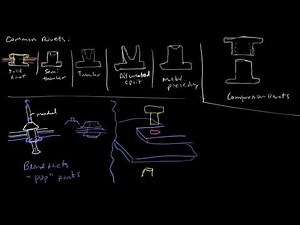 Common Rivets:
Solid
Rivet
Semi
tubular
Tubular
Bifurcated
split
Metal
piercing
Compression Rivets
mandrel
Blind rivets
"pop" rivets